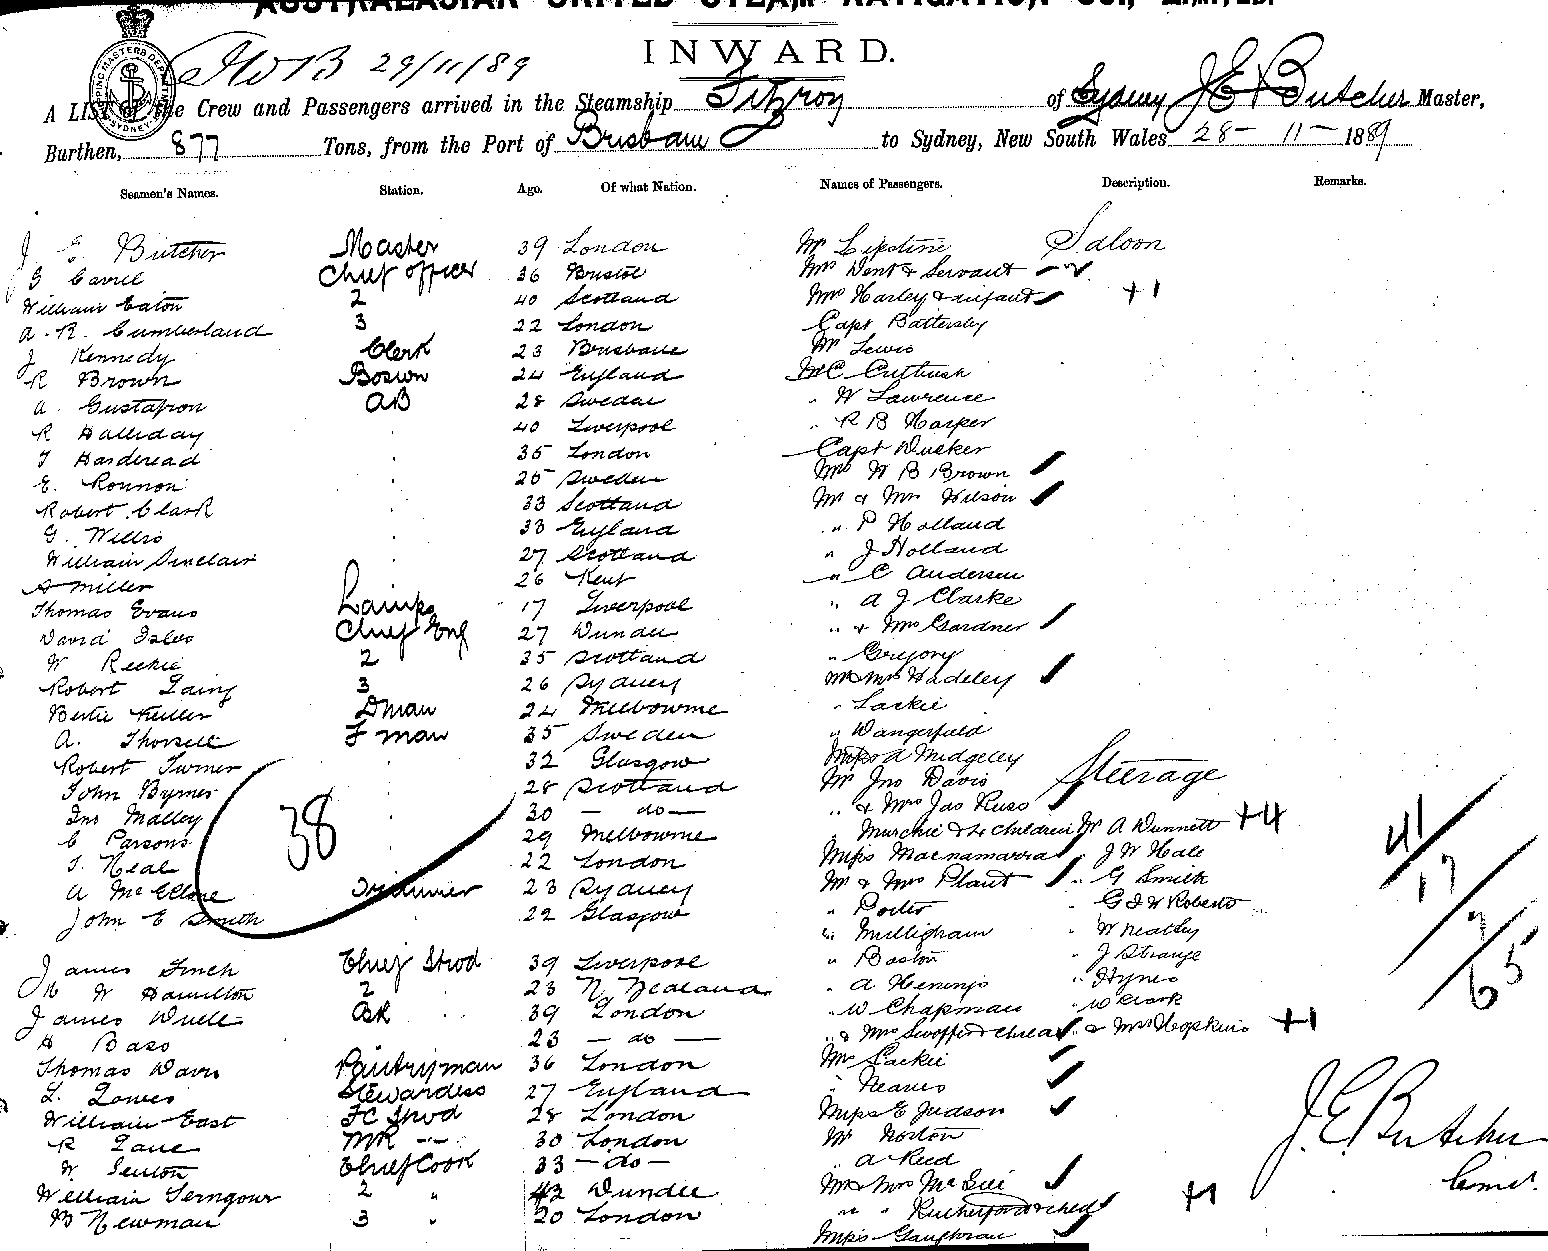 AUSTRALASIAN UNITED STEAM NAVIGATION CO., LIMITED.
INWARD.
29/11/89
A LIST of the Crew and Passengers arrived in the Steamship Fitzroy of Sydney J E Butcher Master,
Burthen, 877 Tons, from the Port of Brisbane to Sydney, New South Wales 28 - 11 - 1889
Seamen's Names. Station. Age. Of what Nation. Names of Passengers. Description. Remarks.
J E Butcher Master 39 London Mr Lipstine Saloon
Carrel Chief officer 36 Bristol Mrs Dent & Servant
William Eaton 2 40 Scotland Mrs Harley & infant +1
A. R. Cumberland 3 22 London Capt Battersby
J Kennedy Clerk 23 Brisbane Mr Lewis
R Brown Bosun 24 England
A. Gustafson AB 28 Sweden " W Lawrence
R Halliday 40 Liverpool " R B Harper
35 London Capt
E. Ronnon 25 Sweden Mrs W B Brown
Robert Clark 33 Scotland Mr & Mrs Wilson
G. Willis 33 England " P Holland
William Sinclair 27 Scotland " J Holland
A Miller 26 Kent " C Andersen
Thomas Evans Lamps 17 Liverpool " A J Clarke
David Isles Chief Eng 27 Dundee " & Mrs Gardner
W Reekie 2 35 Scotland " Gregory
Robert Laing 3 26 Sydney Mr & Mrs Hadeley
Bertie Dman 24 Melbourne " Lackie
A. Thorsell F man 35 Sweden " Wangerfield
Robert Turner 32 Glasgow Midgeley
John Byrnes 28 Scotland Mr Jno Davis Steerage
Jno Malley 30 - do - " & Mrs Jas Russ
C Parsons 38 29 Melbourne " Murchie & 4 children Mr A Dunnett +4
T. Neal 22 London Miss Macnamarra " J W Hale
A Mc Trimmer 23 Sydney Mr & Mrs Plant " G Smith
John E Smith 22 Glasgow " Porter " G & W Roberts
" Mulligham " W Neatby
James Finch Chief Stwd 39 Liverpool " Baston " J Strange
W Hamilton 2 23 N Zealand " A " Hynes
James BK 39 London " W Chapman " W Clark
H Bass 23 - do - " & Mrs & child " & Mrs Hopkins +1
Thomas Davis Pantryman 36 London Mr Lackie
L. Stewardess 27 England " Neaves
William East FC Stwd 28 London Miss E Judson
R Lane MR 30 London Mr Norton
W. Chief Cook 33 - do - " A Reed
William 2 " 42 Dundee Mr & Mrs McGill
B Newman 3 " 20 London " " Rutherford & child +1
Miss Gaughran
41
17
7
65
J. E. Butcher